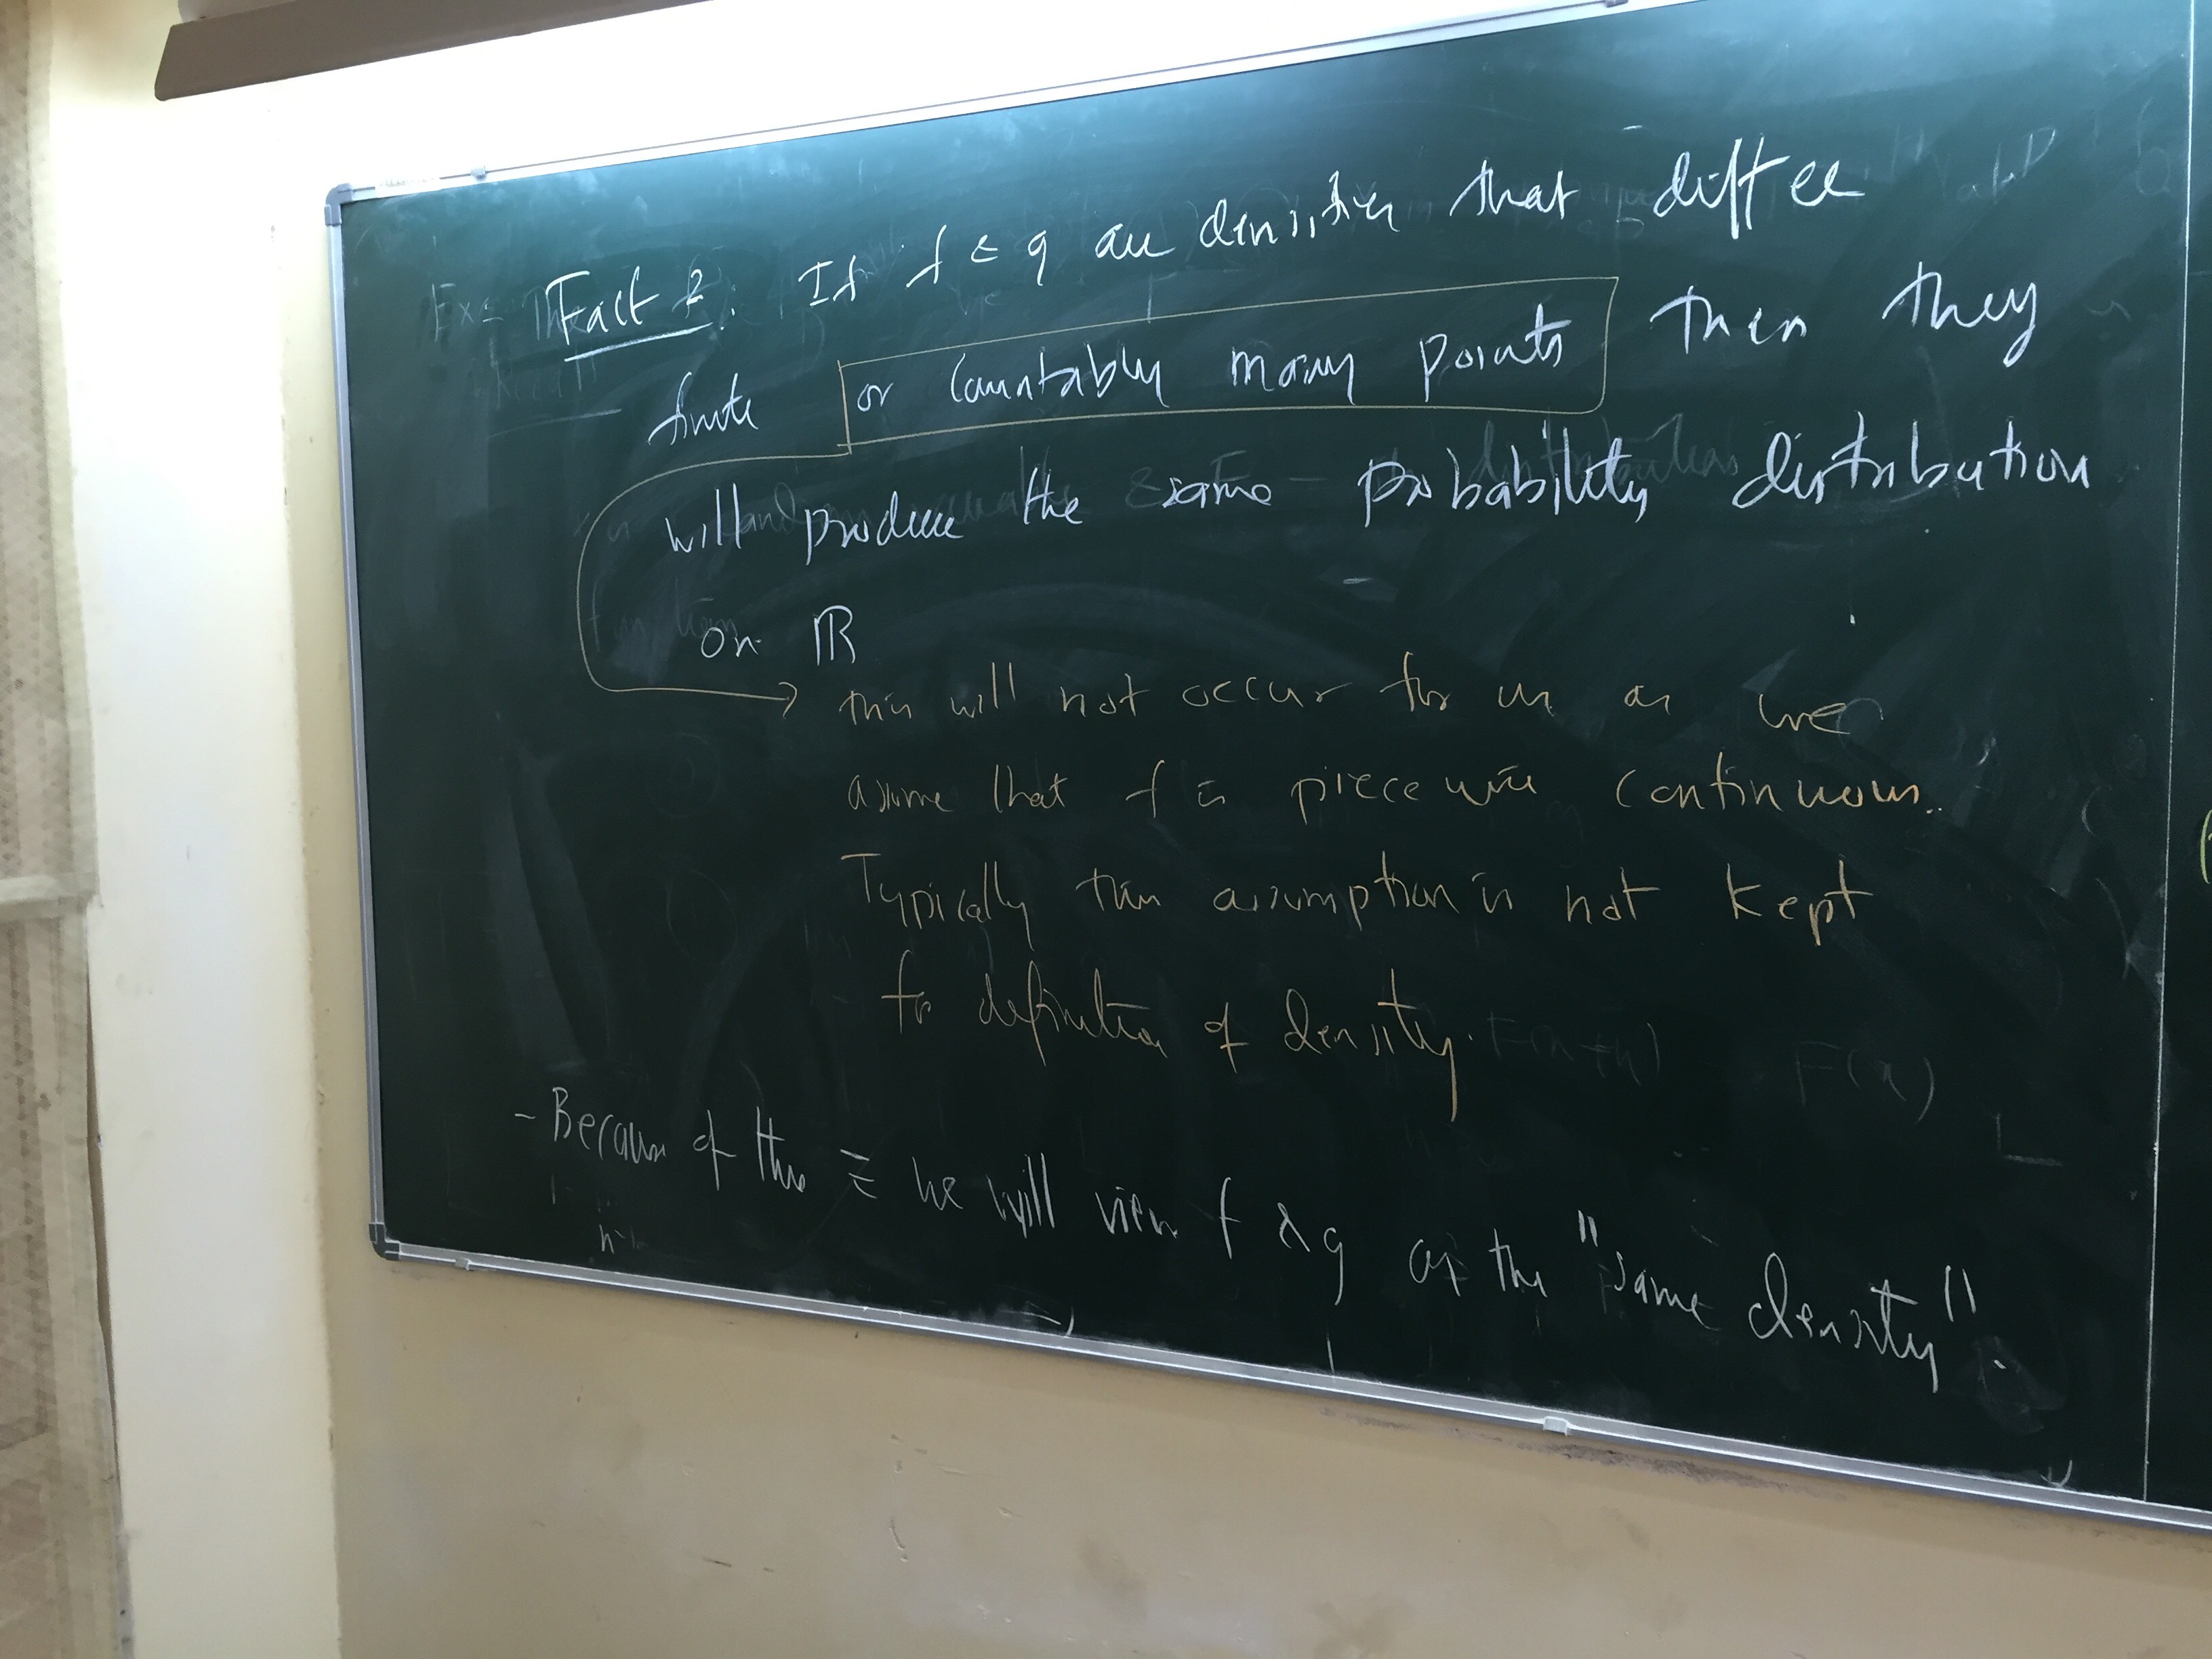 Fact 2: If f & g are densities that differ
finite or countably many points then they
will produce the same probability distribution
on ℝ
this will not occur for us as we
assume that f is piecewise continuous.
Typically this assumption is not kept
for definition of density.
F(x)
- Because of this we will view f & g as the "same density".